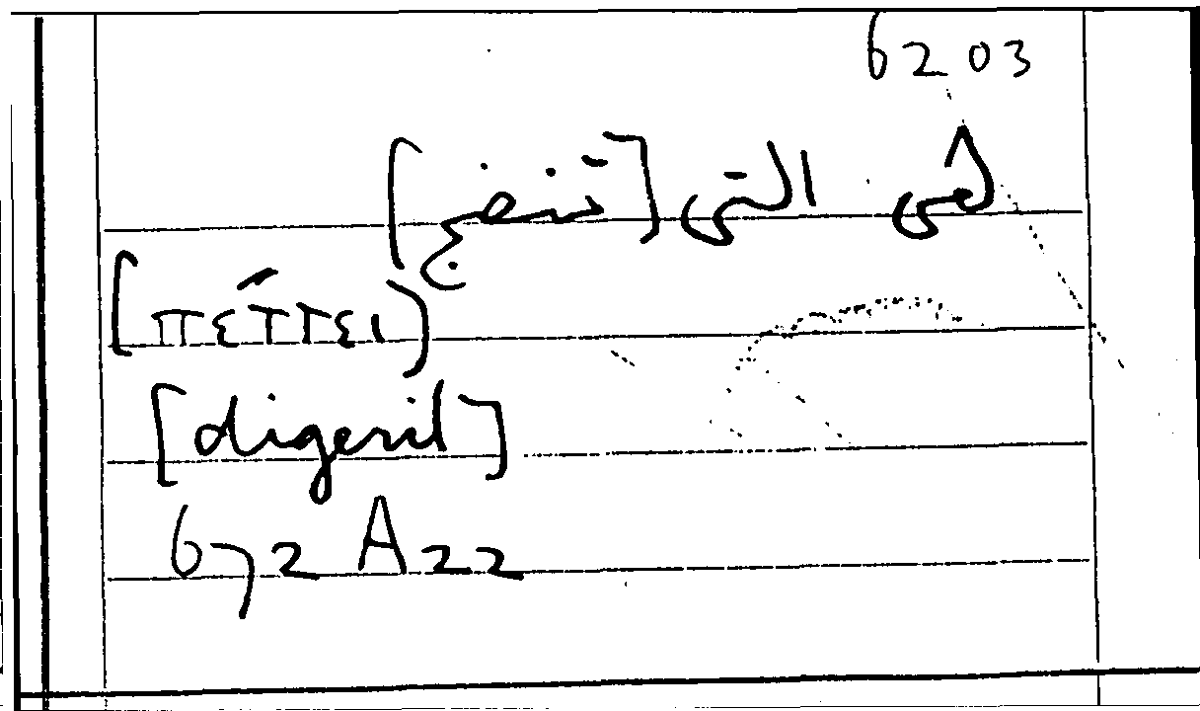 6203
هى التى [تنضج]
[πέττει)
[digerit]
672 A 22